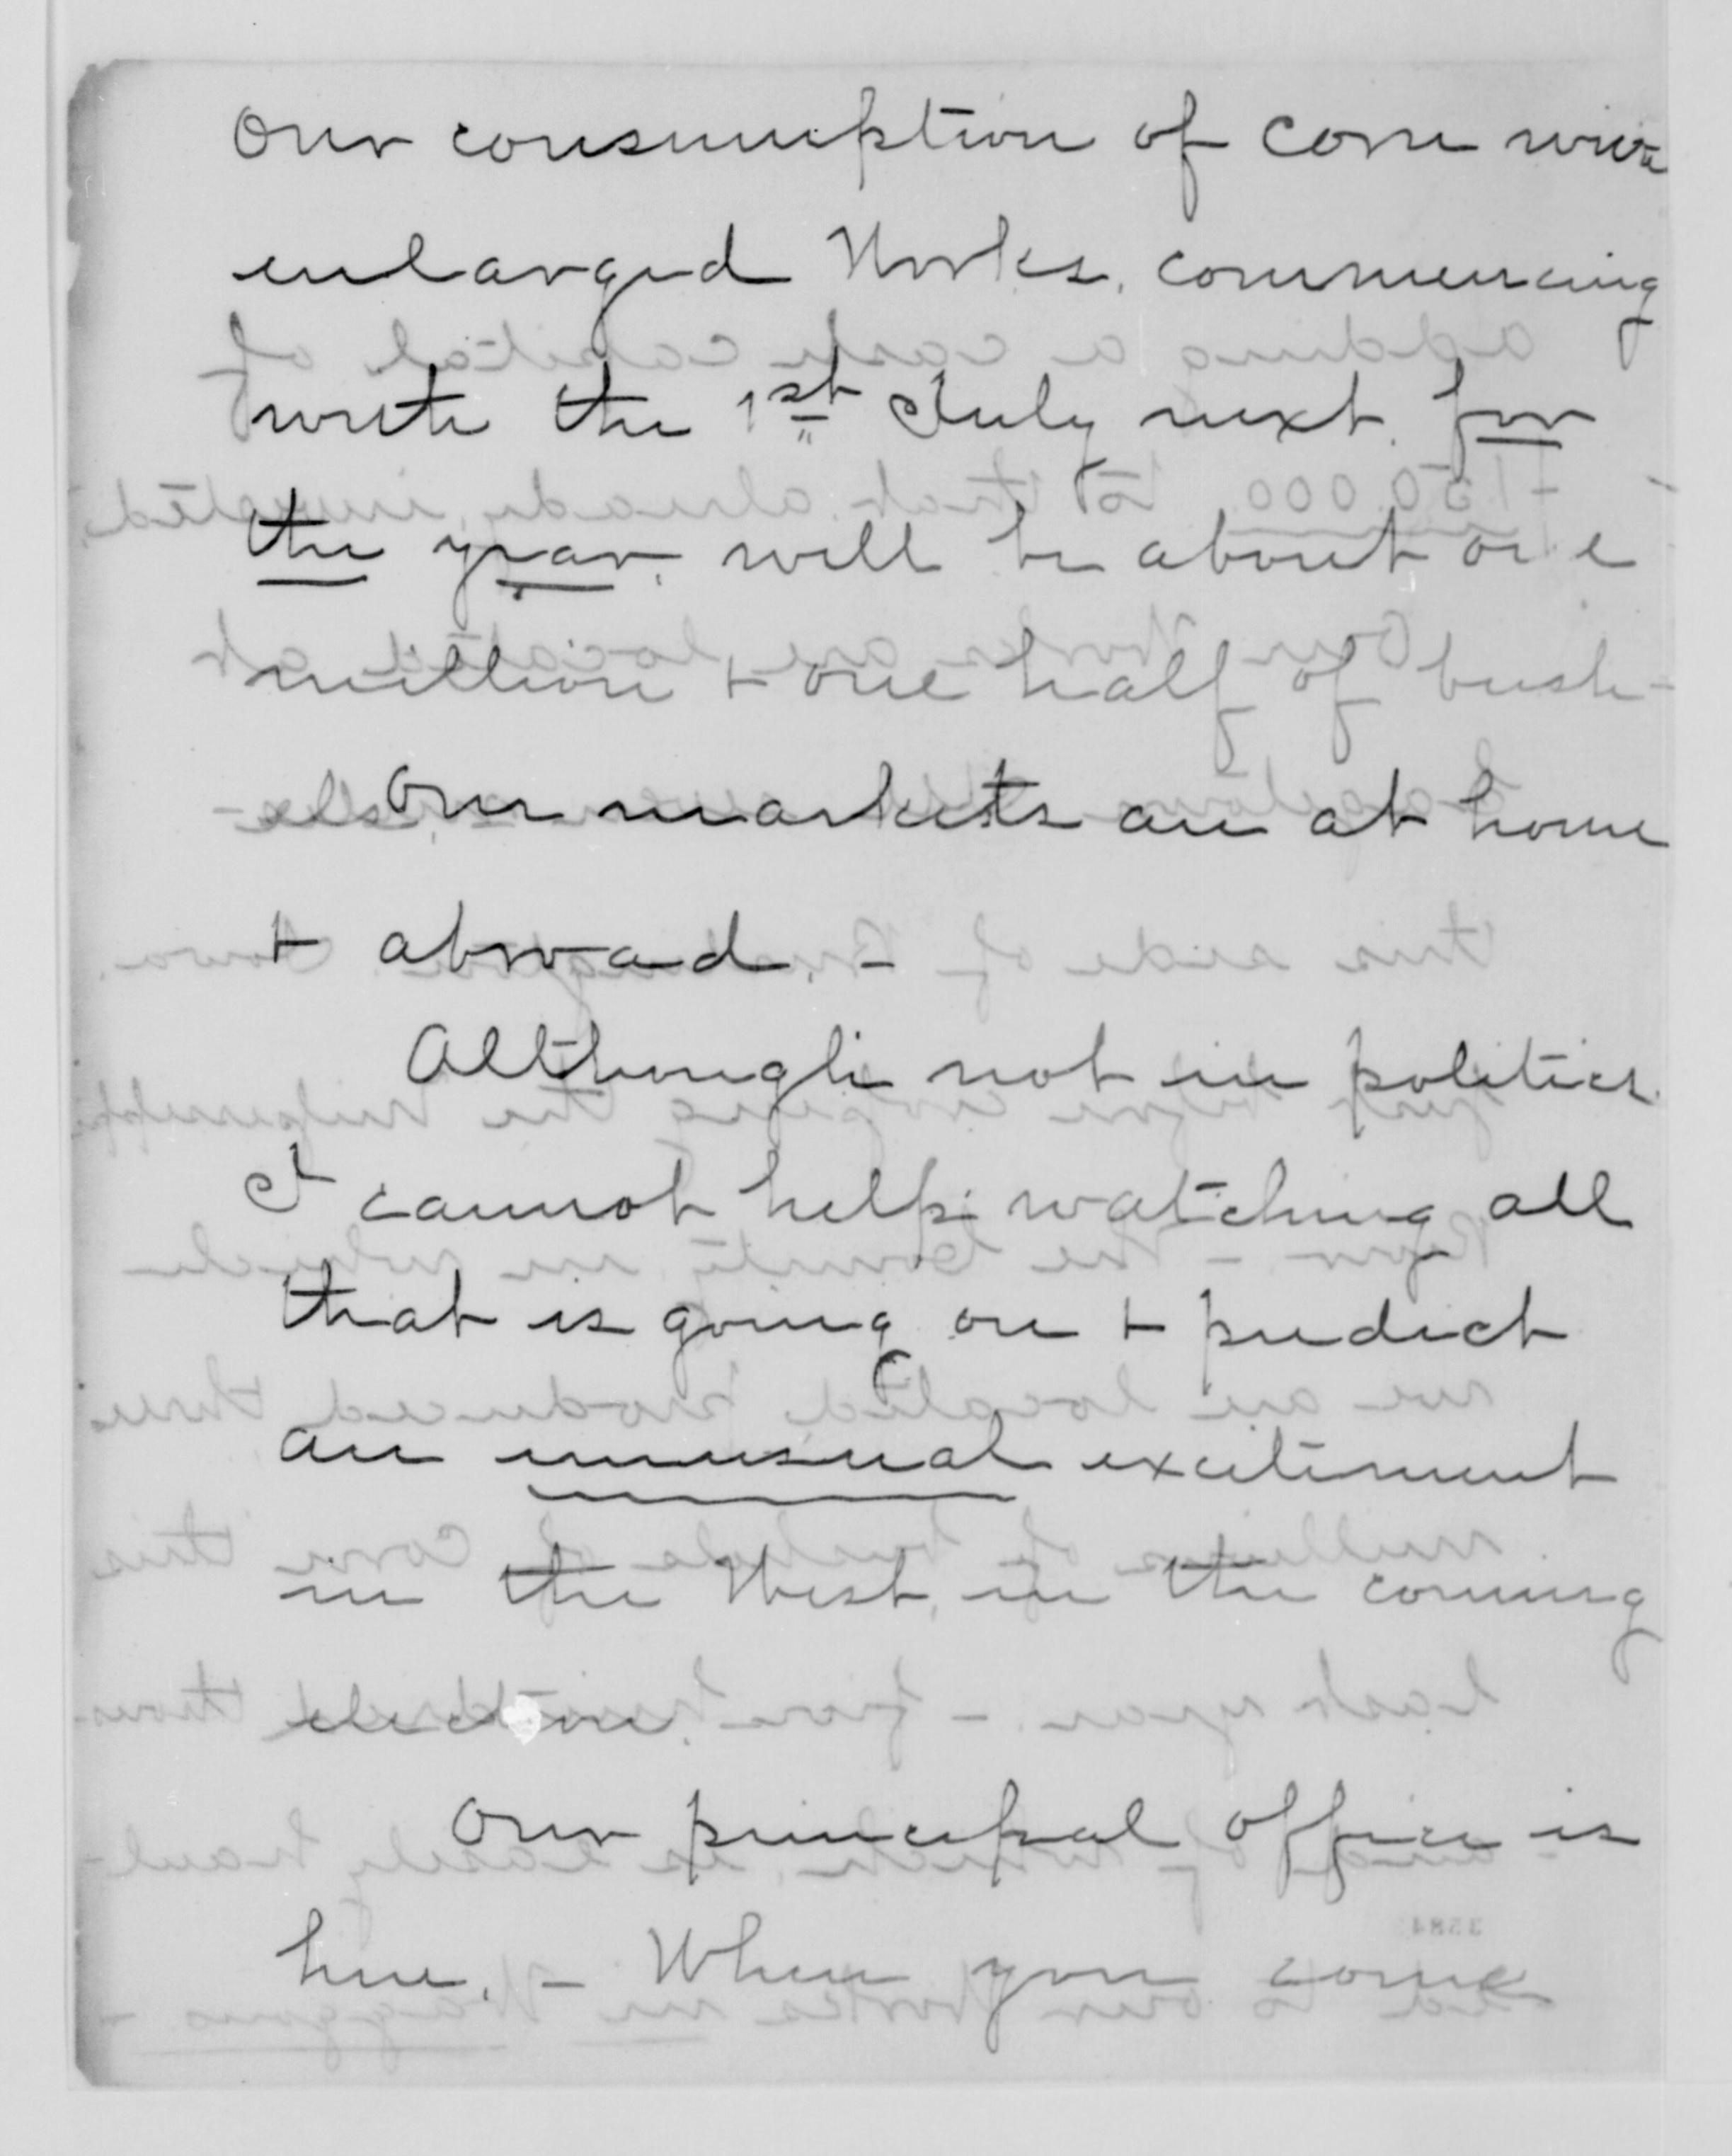 Our consumption of Corn with
enlarged Works, commencing
with the 1st July next, for
the year, will be about one
million + one half of bush-
els. Our markets are at home
+ abroad. -
Although not in politics
I cannot help watching all
that is going on + predict
an unusual excitement
in the West, in the coming
election.
Our principal office is
here. - When you come